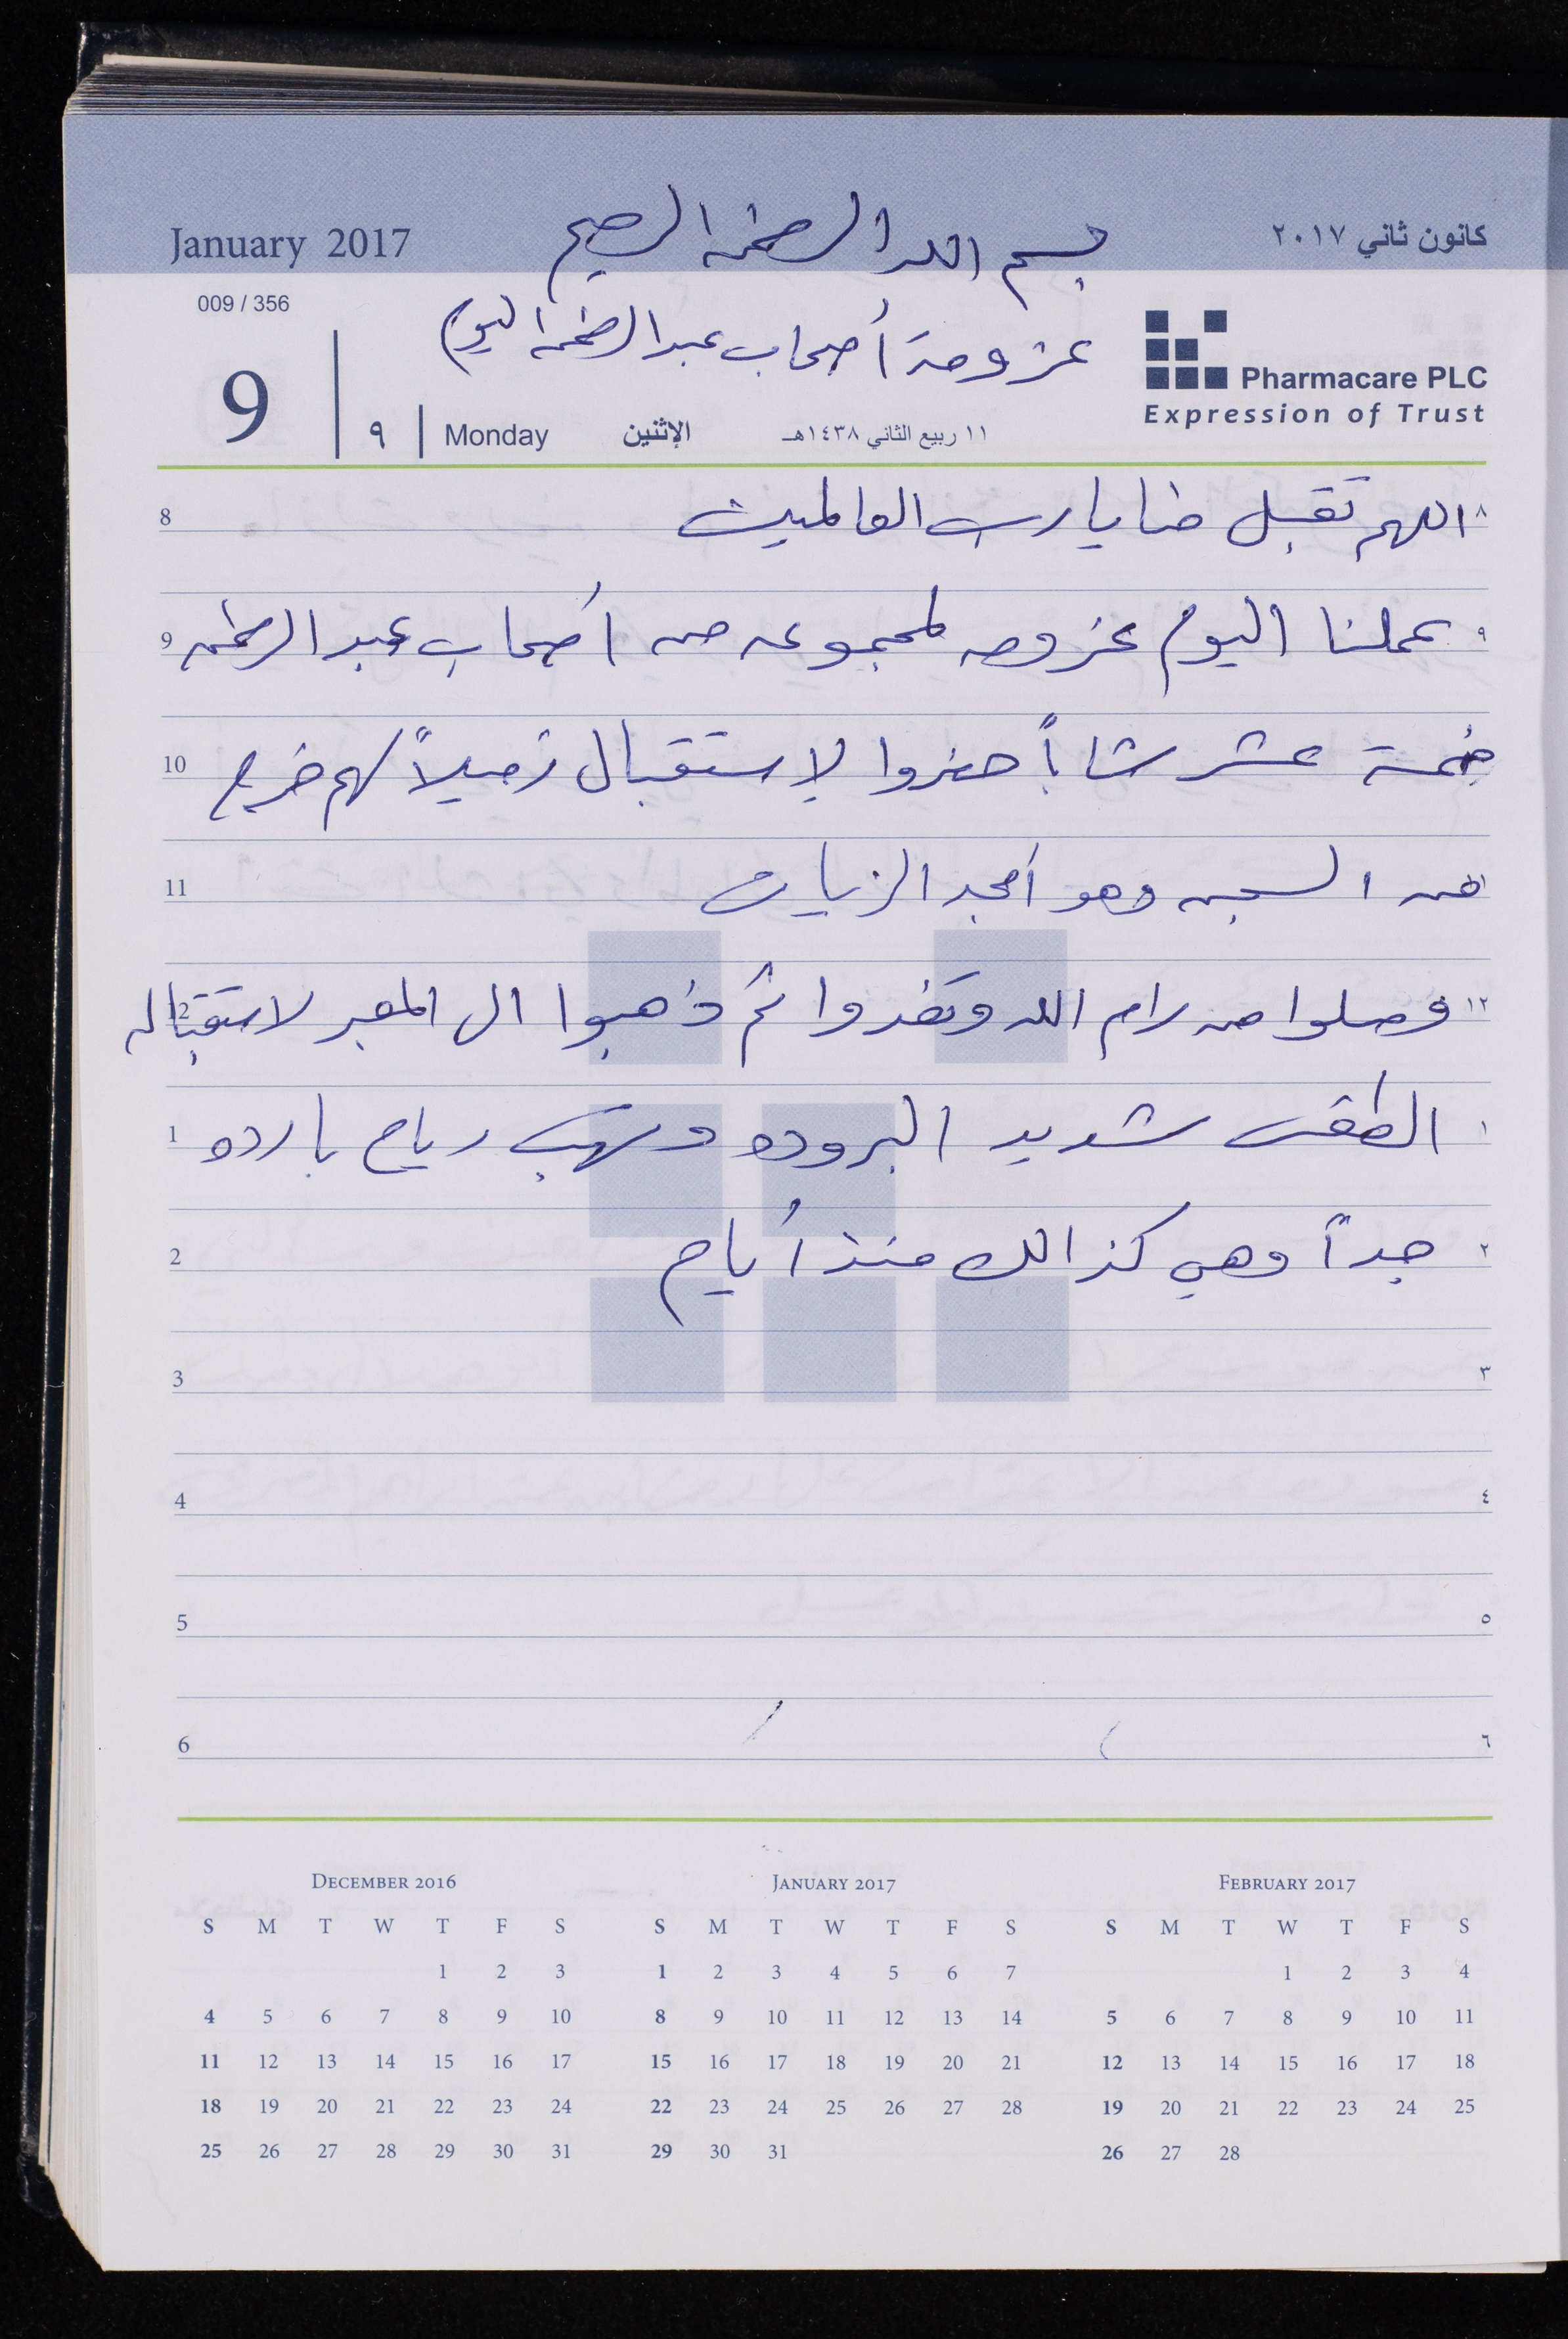 January 2017
بسم الله الرحمن الرحيم
كانون ثاني ٢٠١٧
009 / 356
عزومة أصحاب عبد الرحمن اليوم
Pharmacare PLC
Expression of Trust
9 ٩ Monday الإثنين ١١ ربيع الثاني ١٤٣٨هـ
8 اللهم تقبل منا يا رب العالمين ٨
9 عملنا اليوم عزومه لمجموعه من أصحاب عبد الرحمن ٩
10 خمسة عشر شاباً حضروا لإستقبال زميلاً لهم خرج
11 من السجن وهو أمجد الزيات
12 وصلوا من رام الله وتغدوا ثم ذهبوا الى المعبر لاستقباله ١٢
1 الطقس شديد البروده وتهب رياح بارده ١
2 جداً وهي كذالك منذ أيام ٢
3 ٣
4 ٤
5 ٥
6 ٦
December 2016
S M T W T F S
1 2 3
4 5 6 7 8 9 10
11 12 13 14 15 16 17
18 19 20 21 22 23 24
25 26 27 28 29 30 31
January 2017
S M T W T F S
1 2 3 4 5 6 7
8 9 10 11 12 13 14
15 16 17 18 19 20 21
22 23 24 25 26 27 28
29 30 31
February 2017
S M T W T F S
1 2 3 4
5 6 7 8 9 10 11
12 13 14 15 16 17 18
19 20 21 22 23 24 25
26 27 28